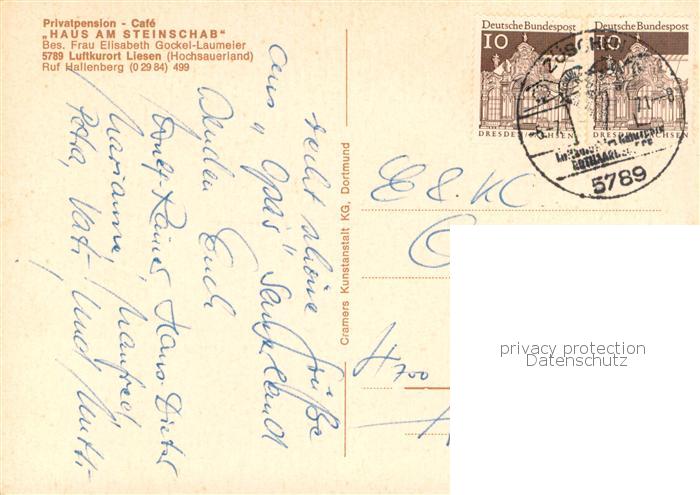 Privatpension - Café
„HAUS AM STEINSCHAB“
Bes. Frau Elisabeth Gockel-Laumeier
5789 Luftkurort Liesen (Hochsauerland)
Ruf Hallenberg (0 29 84) 499
recht schöne Grüße
aus „Opas“ Sauerland
senden Euch
Rainer, Hans-Dieter
Marianne, Manfred
Petra, Vati und Mutti
Cramers Kunstanstalt KG, Dortmund
Deutsche Bundespost
10
DRESDEN/SACHSEN
Deutsche Bundespost
10
DRESDEN/SACHSEN
5789
privacy protection
Datenschutz